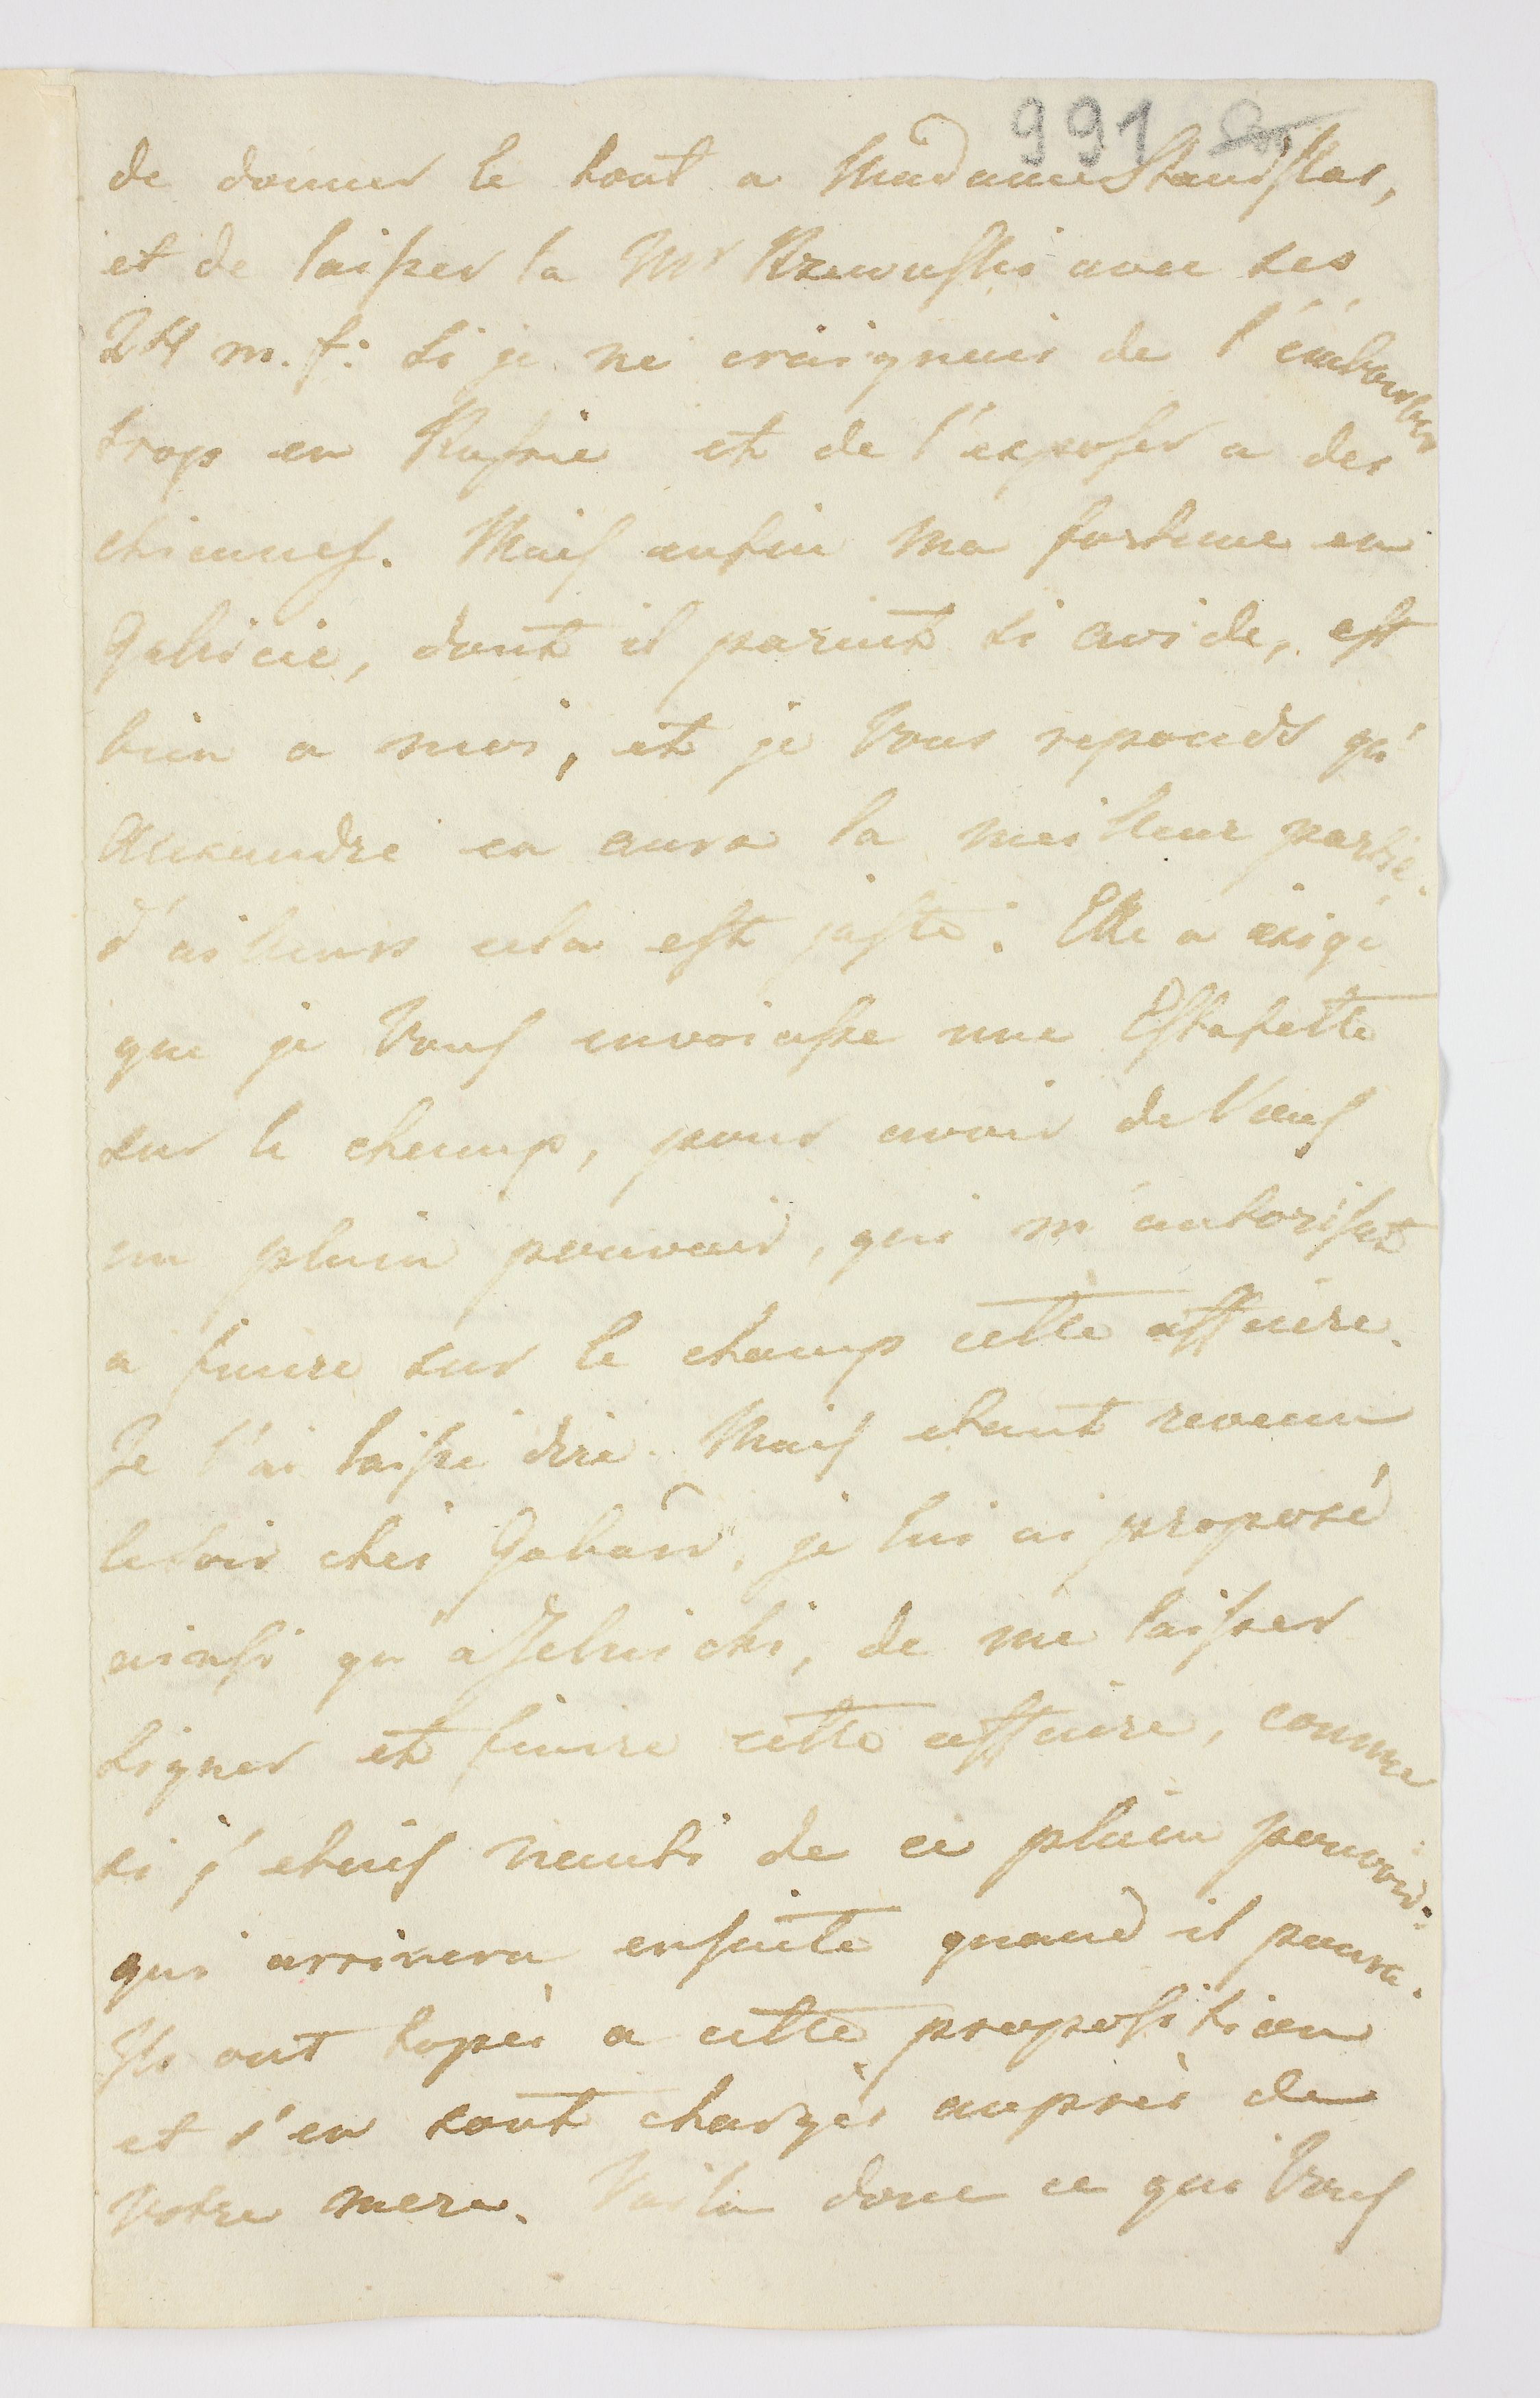 991
de donner le tout a Madame Stanislas,
et de laisser la Mr Rzewuski avec ses
24 m. f: si je ne craignais de l'émbourber
trop en Russie et de l'exposer a des
chicanes. Mais enfin ma fortune en
Galicie, dont il parait si avide, est
bien a moi, et je Vous reponds qu'
Alexandre en aura la meilleur partie.
d'ailleurs cela est juste. Elle a éxigé
que je Vous envoiasse une Estafette
sur le champ, pour avoir de Vous
un plain pouvoir, qui m'autorisat
a finire sur le champ cette affaire.
Je l'ai laissé dire. Mais etant revenu
le soir chez , je lui ai proposé
ainsi qu'a , de me laisser
signer et finire cette affaire, comme
si j'etais nanti de ce plain pouvoir:
qui arrivera ensuite quand il poura.
Ils ont topés a cette proposition
et s'en sont chargés auprès de
Votre mere. Voila donc ce qui Vous